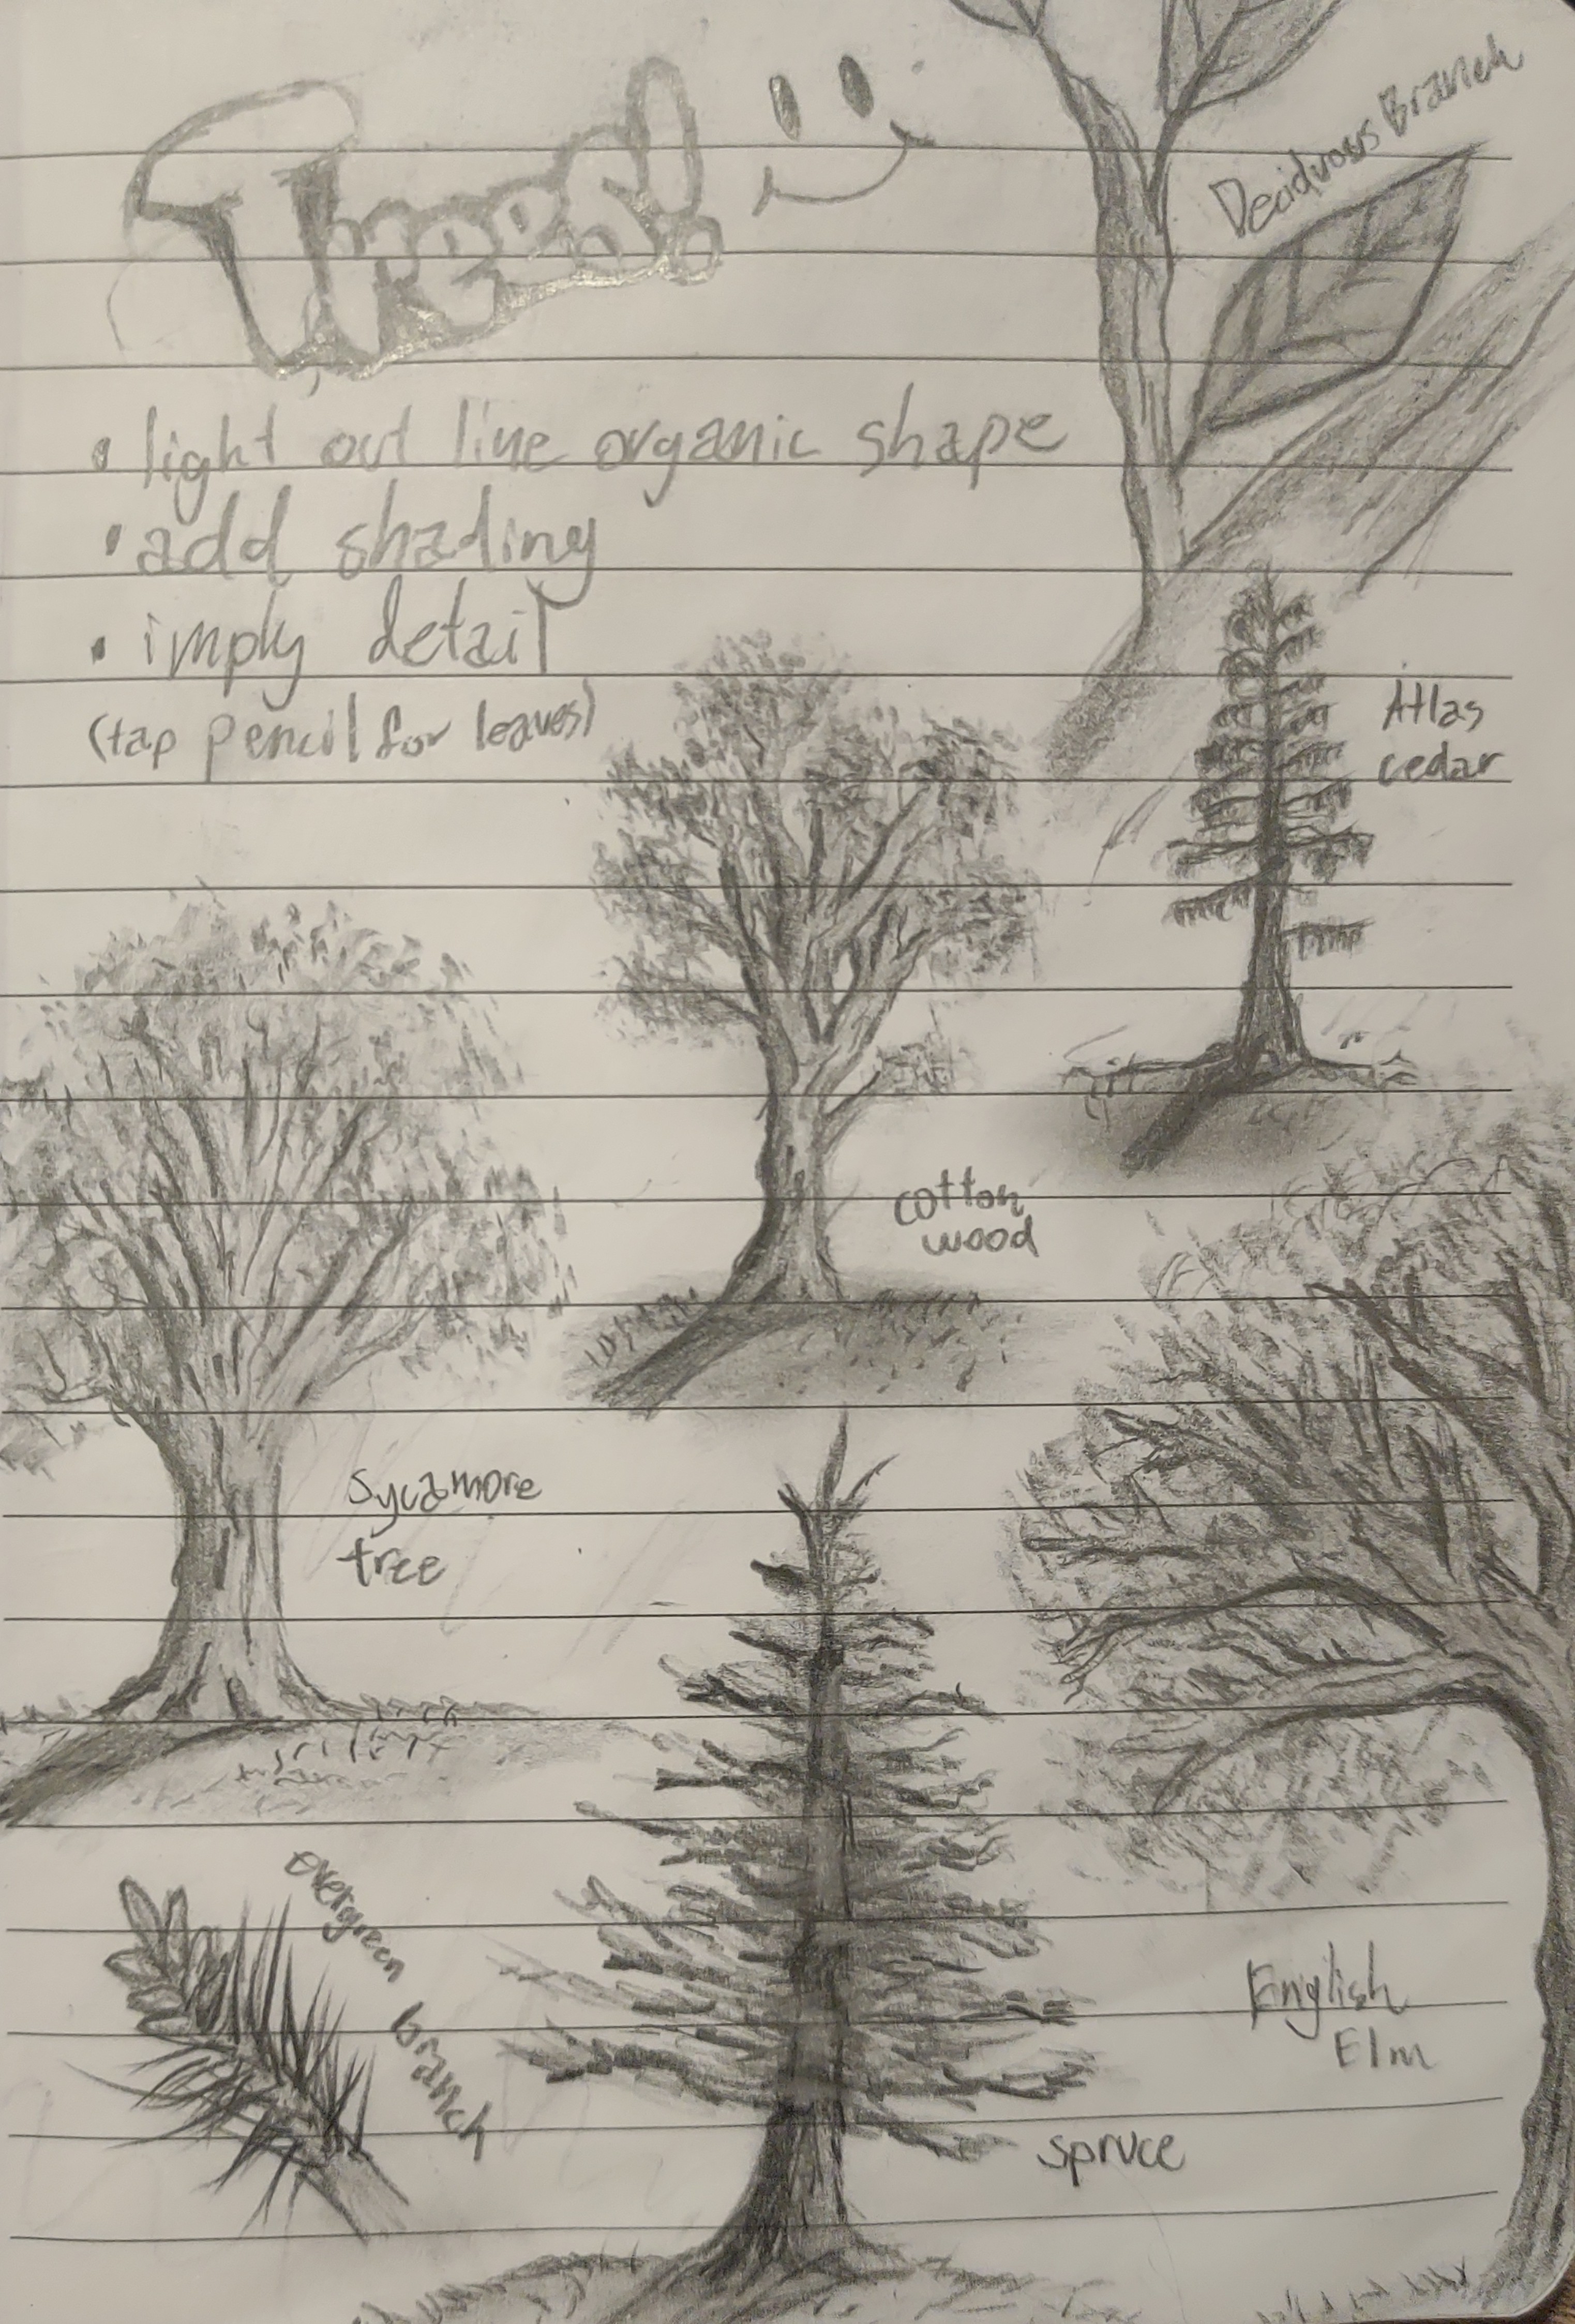 Trees!
Deciduous Branch
• light out line organic shape
• add shading
• imply detail
(tap pencil for leaves)
Atlas
cedar
cotton
wood
Sycamore
tree
evergreen branch
English
Elm
spruce